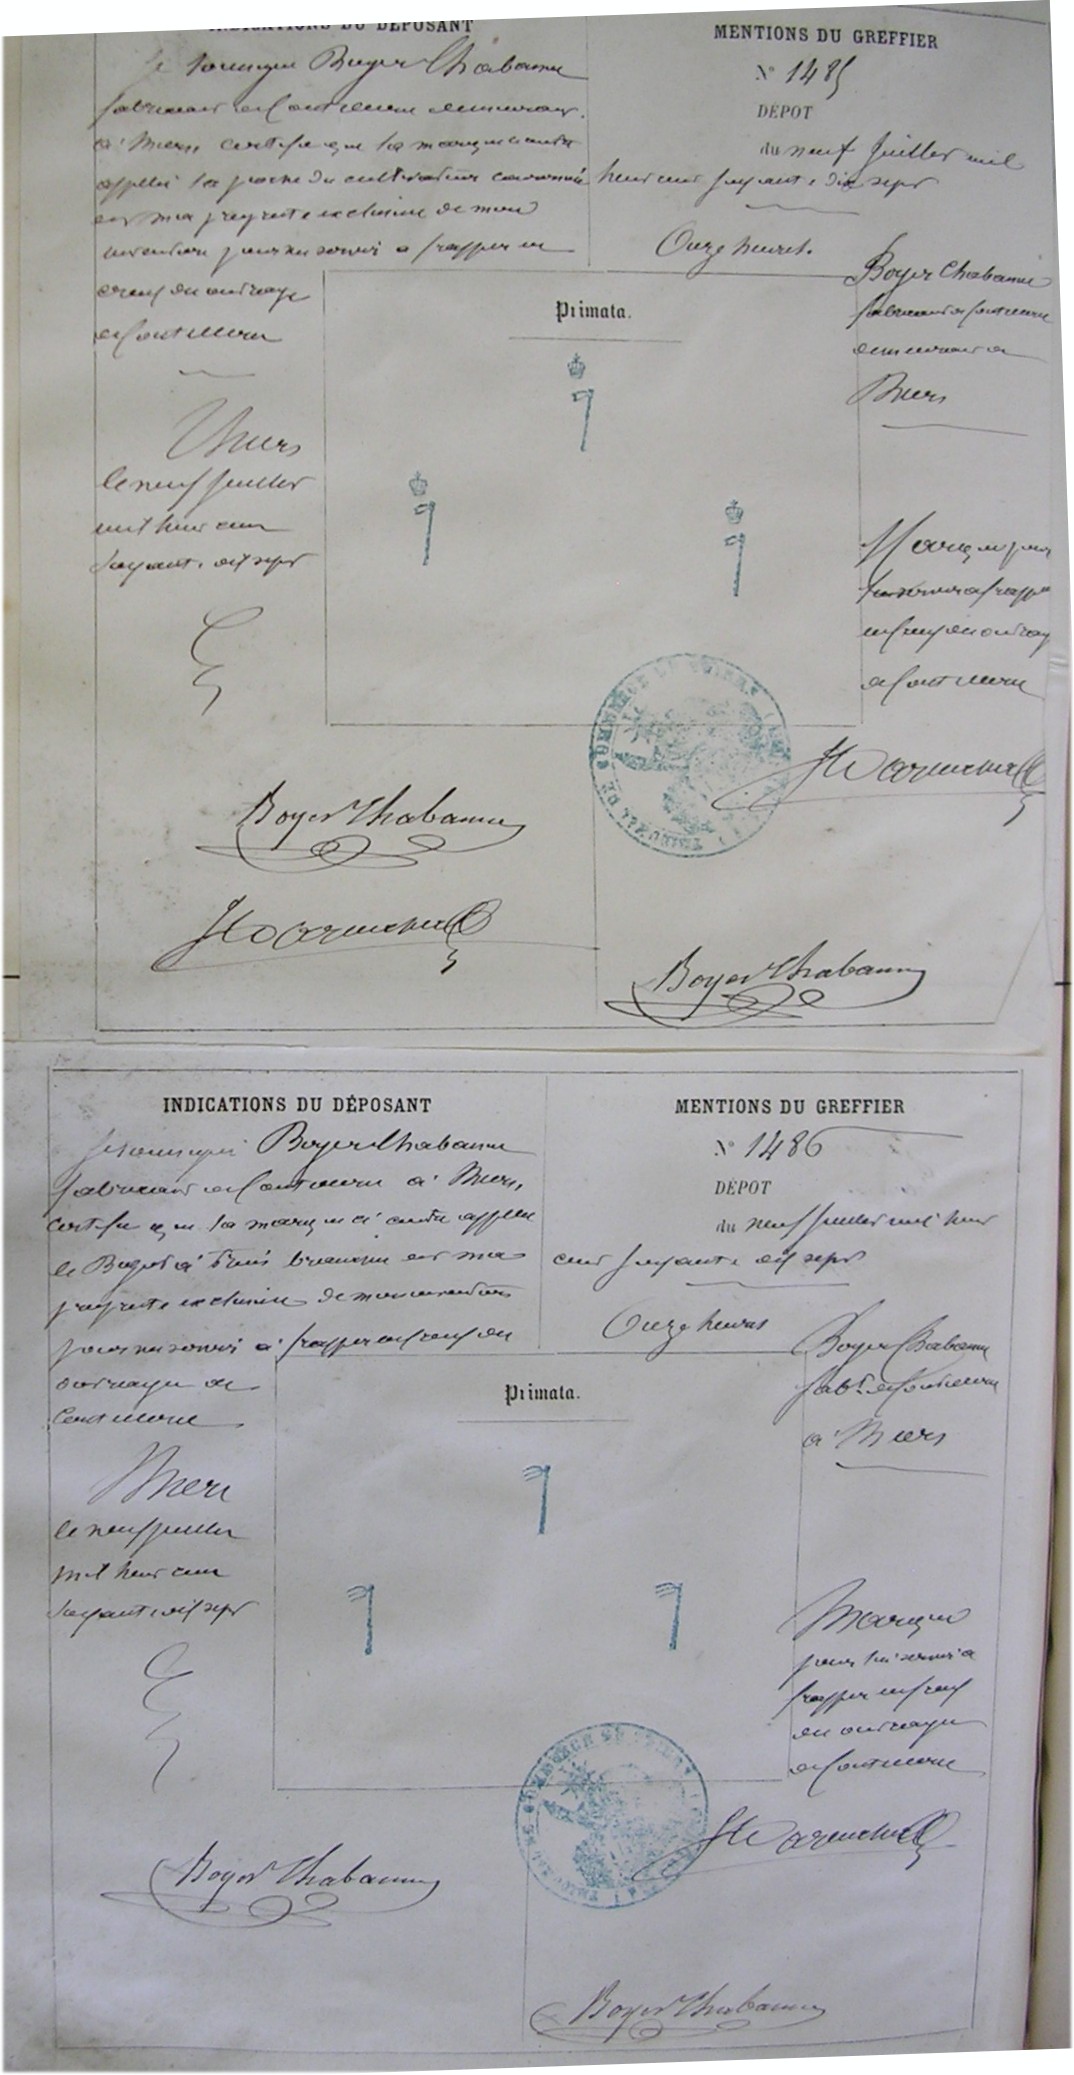 INDICATIONS DU DÉPOSANT
Je soussigné Boyer Chabanne
fabricant de Coutellerie demeurant
à Thiers certifie que la marque ci contre
appellé la pioche du cultivateur couronné
est ma propriété exclusive de mon
invention pour me servir a frapper en
creux des ouvrages
de Coutellerie
Thiers
le neuf Juillet
mil huit cent
soixante dix sept
Boyer Chabanne
MENTIONS DU GREFFIER
N° 1485
DÉPOT
du neuf Juillet mil
huit cent soixante dix sept
Onze heures.
Boyer Chabanne
fabricant de Coutellerie
demeurant a
Thiers
Primata.
Marque pour
lui servir a frapper
en creux des ouvrages
de Coutellerie
TRIBUNAL DE COMMERCE DE THIERS
Boyer Chabanne
INDICATIONS DU DÉPOSANT
Je soussigné Boyer Chabanne
fabricant de Coutellerie à Thiers
certifie que la marque ci contre appellé
le Bigot à trois branches est ma
propriété exclusive de mon invention
pour me servir a frapper en creux des
ouvrages de
Coutellerie
Thiers
le neuf juillet
mil huit cent
soixante dix sept
Boyer Chabanne
MENTIONS DU GREFFIER
N° 1486
DÉPOT
du neuf Juillet mil huit
cent soixante dix sept
Onze heures
Boyer Chabanne
fabt. de Coutellerie
à Thiers
Primata.
Marque
pour lui servir a
frapper en creux
des ouvrages
de Coutellerie
TRIBUNAL DE COMMERCE DE THIERS
Boyer Chabanne